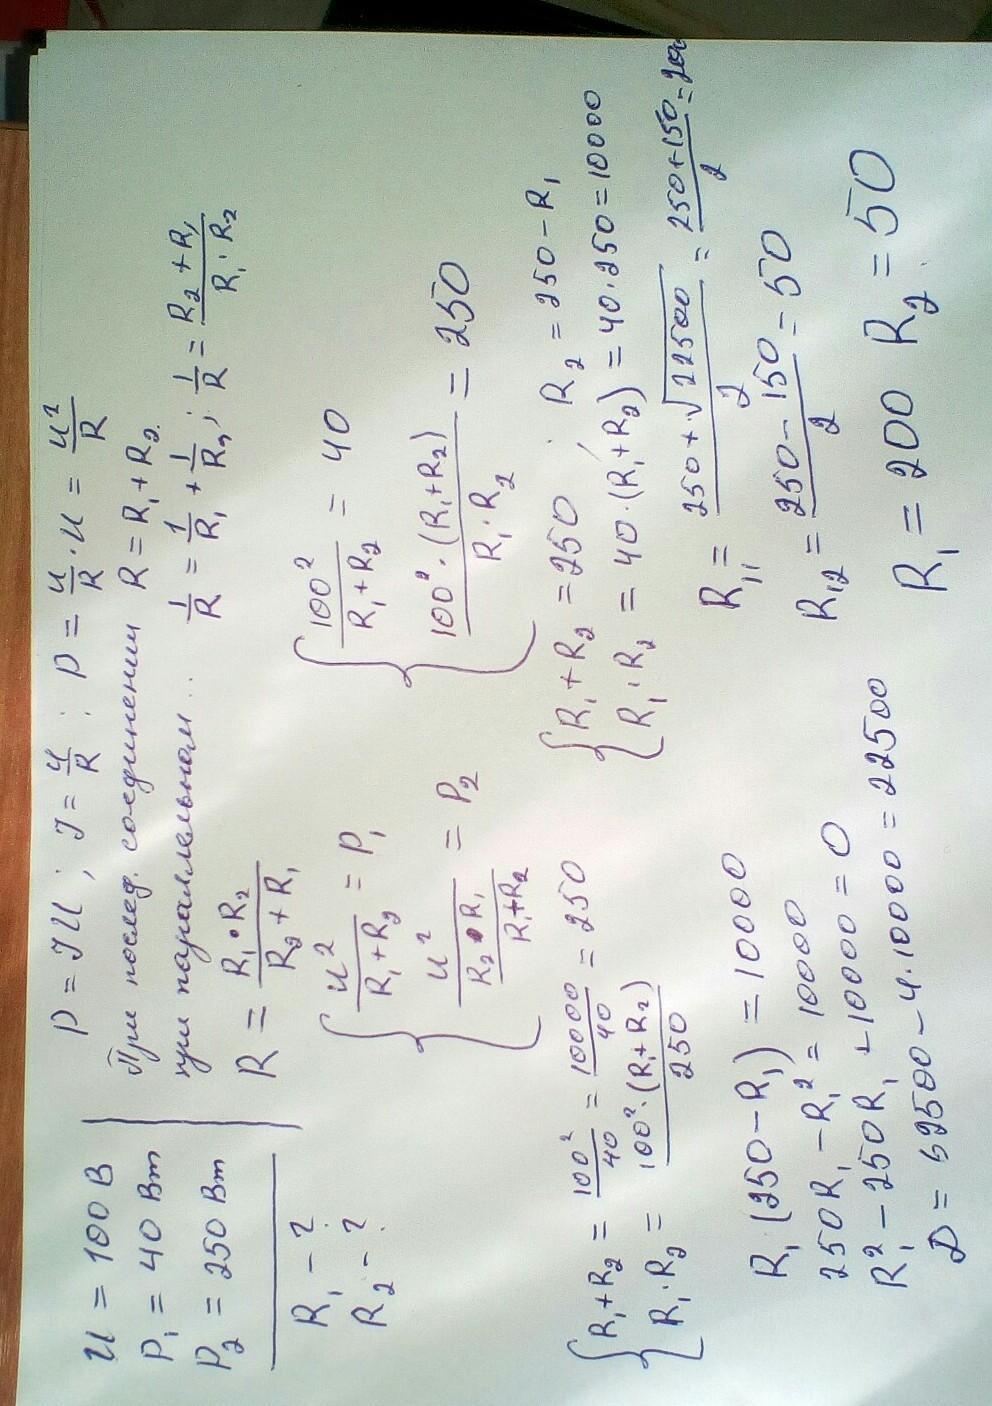 U = 100 В
P₁ = 40 Вт
P₂ = 250 Вт
R₁ - ?
R₂ - ?
P = IU ; I = U/R ; P = U/R · U = U²/R
При послед. соединении R = R₁ + R₂
при параллельном... 1/R = 1/R₁ + 1/R₂ ; 1/R = (R₂ + R₁)/(R₁ · R₂)
R = (R₁ · R₂)/(R₂ + R₁)
{ U²/(R₁ + R₂) = P₁
U²/((R₂ · R₁)/(R₁ + R₂)) = P₂
{ 100²/(R₁ + R₂) = 40
100² · (R₁ + R₂)/(R₁ · R₂) = 250
{ R₁ + R₂ = 100²/40 = 10000/40 = 250
R₁ · R₂ = 100² · (R₁ + R₂)/250
{ R₁ + R₂ = 250 ; R₂ = 250 - R₁
R₁ · R₂ = 40 · (R₁ + R₂) = 40 · 250 = 10000
R₁ (250 - R₁) = 10000
250R₁ - R₁² = 10000
R₁² - 250R₁ + 10000 = 0
D = 62500 - 4 · 10000 = 22500
R₁₁ = (250 + √22500)/2 = (250 + 150)/2 = 200
R₁₂ = (250 - 150)/2 = 50
R₁ = 200 R₂ = 50